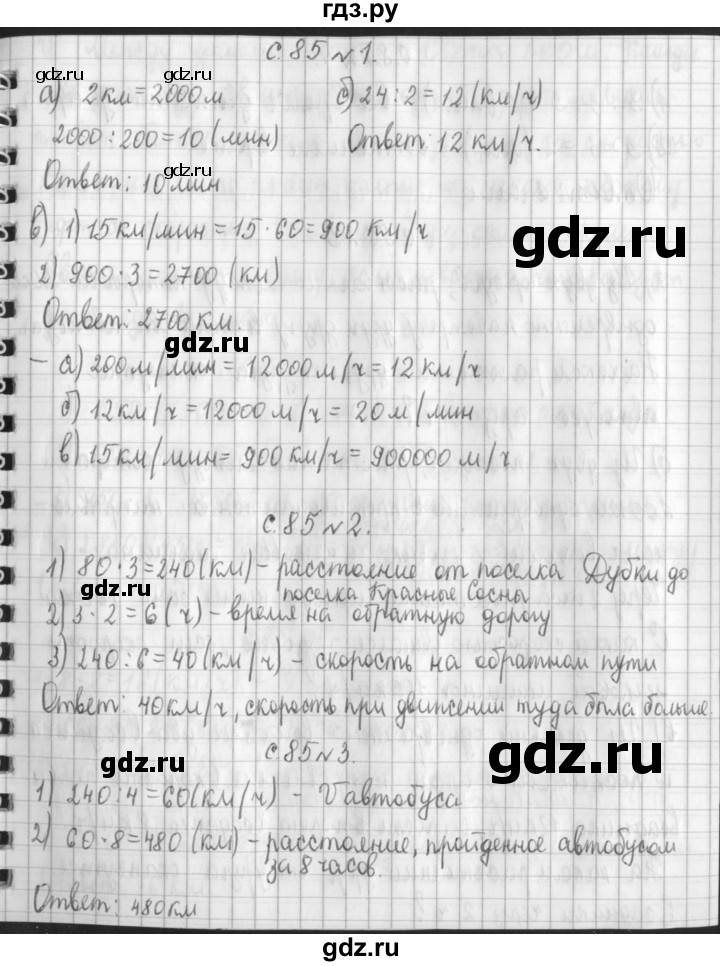 гдз.ру
с.85 №1.
gdz.ru gdz.ru
а) 2км=2000м б) 24:2=12(км/ч)
2000:200=10(мин) Ответ: 12км/ч.
gdz.ru gdz.ru
Ответ: 10мин
в) 1) 15км/мин=15·60=900 км/ч
gdz.ru
2) 900·3=2700(км)
Ответ: 2700км.
gdz.ru
– а) 200м/мин=12000м/ч=12км/ч
б) 12км/ч=12000м/ч=20м/мин
в) 15км/мин=900км/ч=900000м/ч
с.85 №2.
1) 80·3=240(км)-расстояние от поселка Дубки до
поселка Красные Сосны
gdz.ru
2) 3·2=6(ч)-время на обратную дорогу
3) 240:6=40(км/ч)-скорость на обратном пути
Ответ: 40км/ч, скорость при движении туда была больше.
с.85 №3.
gdz.ru
gdz.ru
1) 240:4=60(км/ч) - Vавтобуса
2) 60·8=480(км)-расстояние, пройденное автобусом
за 8 часов.
gdz.ru
Ответ: 480км
gdz.ru